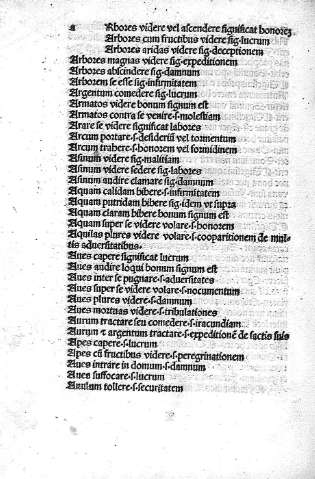 a Rbores videre vel ascendere significat honorez
Arbores cum fructibus videre sig·lucrum
Arbores aridas videre sig·deceptionem
Arbores magnas videre sig·expeditionem
Arbores abscindere sig·damnum
Arborem se esse sig·infirmitatem
Argentum comedere sig·lucrum
Armatos videre bonum signum est
Armatos contra se venire·s·molestiam
Arare se videre significat labores
Arcum portare·s·desideriũ vel tormentum
Arcum trahere·s·honorem vel formidinem
Asinum videre sig·malitiam
Asinum videre sedere sig·labores
Asinum audire clamare sig·damnum
Aquam calidam bibere·s·infirmitatem
Aquam putridam bibere sig·idem vt supra
Aquam claram bibere bonum signum est
Aquam super se videre volare·s·honorem
Aquilas plures videre volare·s·cooparitionem de mul-
tis aduersitatibus·
Aues capere significat lucrum
Aues audire loqui bonum signum est
Aues inter se pugnare·s·aduersitates
Aues super se videre volare·s·nocumentum
Aues plures videre·s·damnum
Aues mortuas videre·s·tribulationes
Aurum tractare seu comedere·s·iracundiam
Aurum ⁊ argentum tractare·s·expeditionẽ de factis suis
Apes capere·s·lucrum
Apes cũ fructibus videre·s·peregrinationem
Aues intrare in domum·s·damnum
Aues suffocare·s·lucrum
Anulum tollere·s·securitatem